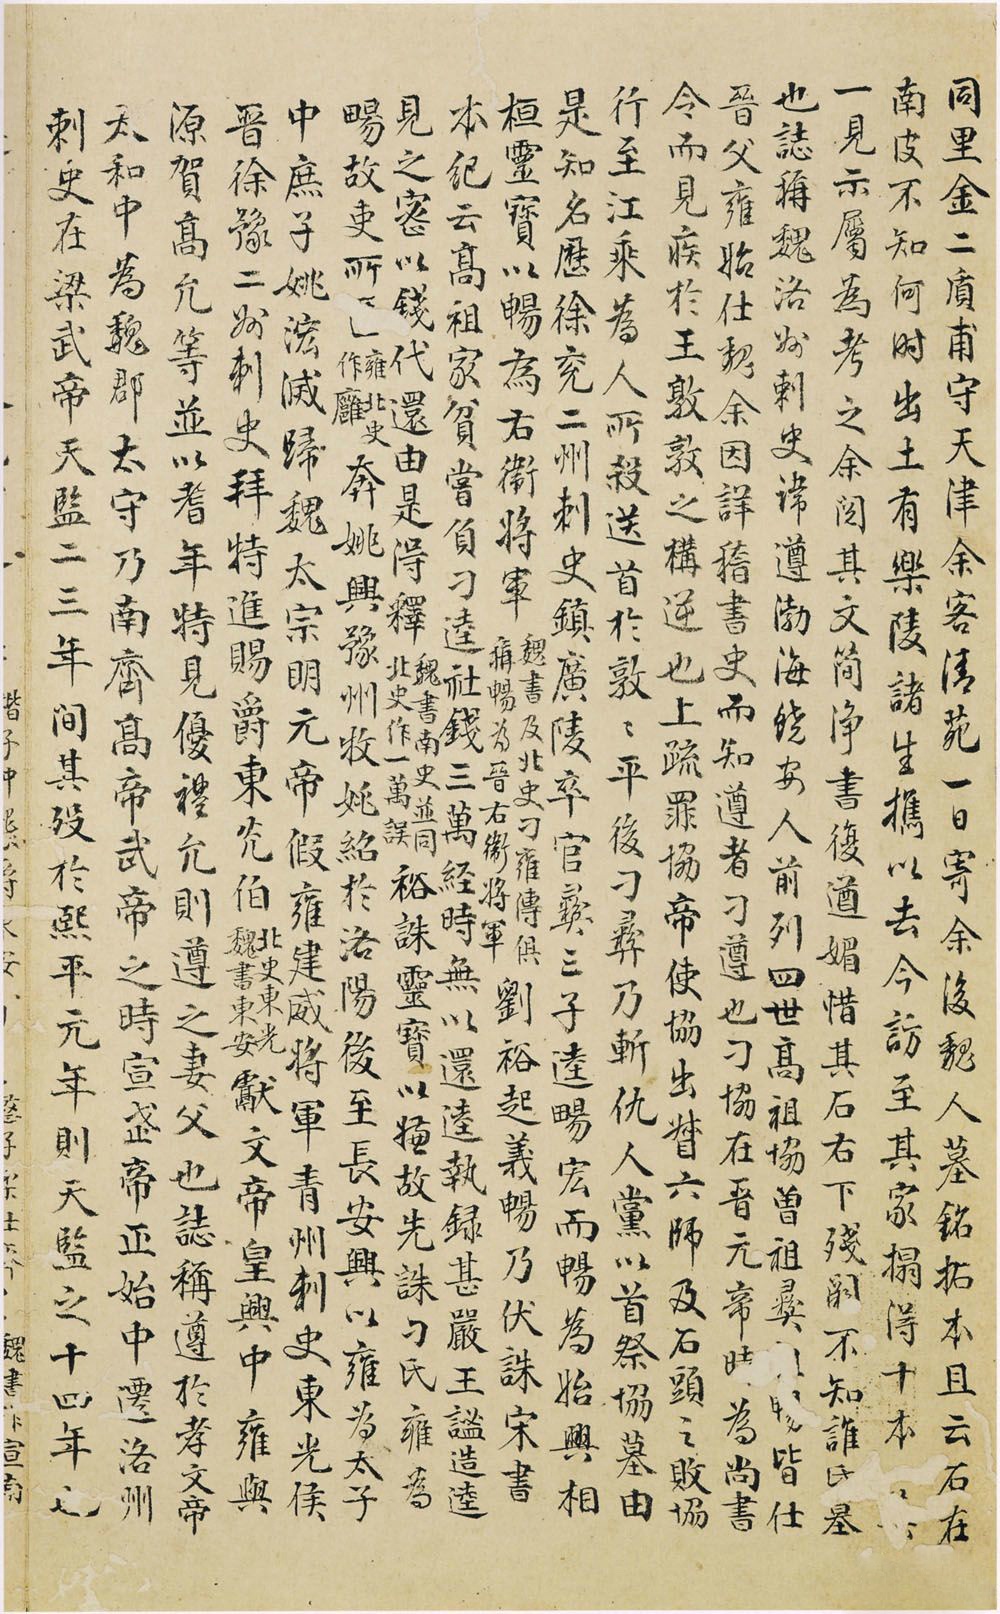 同里金二質甫守天津余客清苑一日寄余後魏人墓銘拓本且云石在
南皮不知何時出土有樂陵諸生攜以去今訪至其家搨得十本
一見示屬為考之余閱其文簡淨書復遒媚惜其石右下殘闕不知誰氏墓
也誌稱魏洛州刺史諱遵渤海饒安人前列四世高祖協曾祖彝 暢皆仕
晉父雍始仕魏余因詳稽書史而知遵者刁遵也刁協在晉元帝時為尚書
令而見疾於王敦敦之構逆也上疏罪協帝使協出督六師及石頭之敗協
行至江乘為人所殺送首於敦敦平後刁彝乃斬仇人黨以首祭協墓由
是知名歷徐兗二州刺史鎮廣陵卒官彝三子逵暢宏而暢為始興相
桓靈寶以暢為右衛將軍魏書及北史刁雍傳俱稱暢為晉右衛將軍劉裕起義暢乃伏誅宋書
本紀云高祖家貧嘗負刁逵社錢三萬經時無以還逵執録甚嚴王謐造逵
見之密以錢代還由是得釋魏書南史並同北史作一萬誤裕誅靈寶以嫌故先誅刁氏雍為
暢故吏所匿雍北史作廱奔姚興豫州牧姚紹於洛陽後至長安興以雍為太子
中庶子姚泓滅歸魏太宗明元帝假雍建威將軍青州刺史東光侯
晉徐豫二州刺史拜特進賜爵東光伯北史東光魏書東安獻文帝皇興中雍與
源賀高允等並以耆年特見優禮允則遵之妻父也誌稱遵於孝文帝
太和中為魏郡太守乃南齊高帝武帝之時宣武帝正始中遷洛州
刺史在梁武帝天監二三年間其歿於熙平元年則天監之十四年也